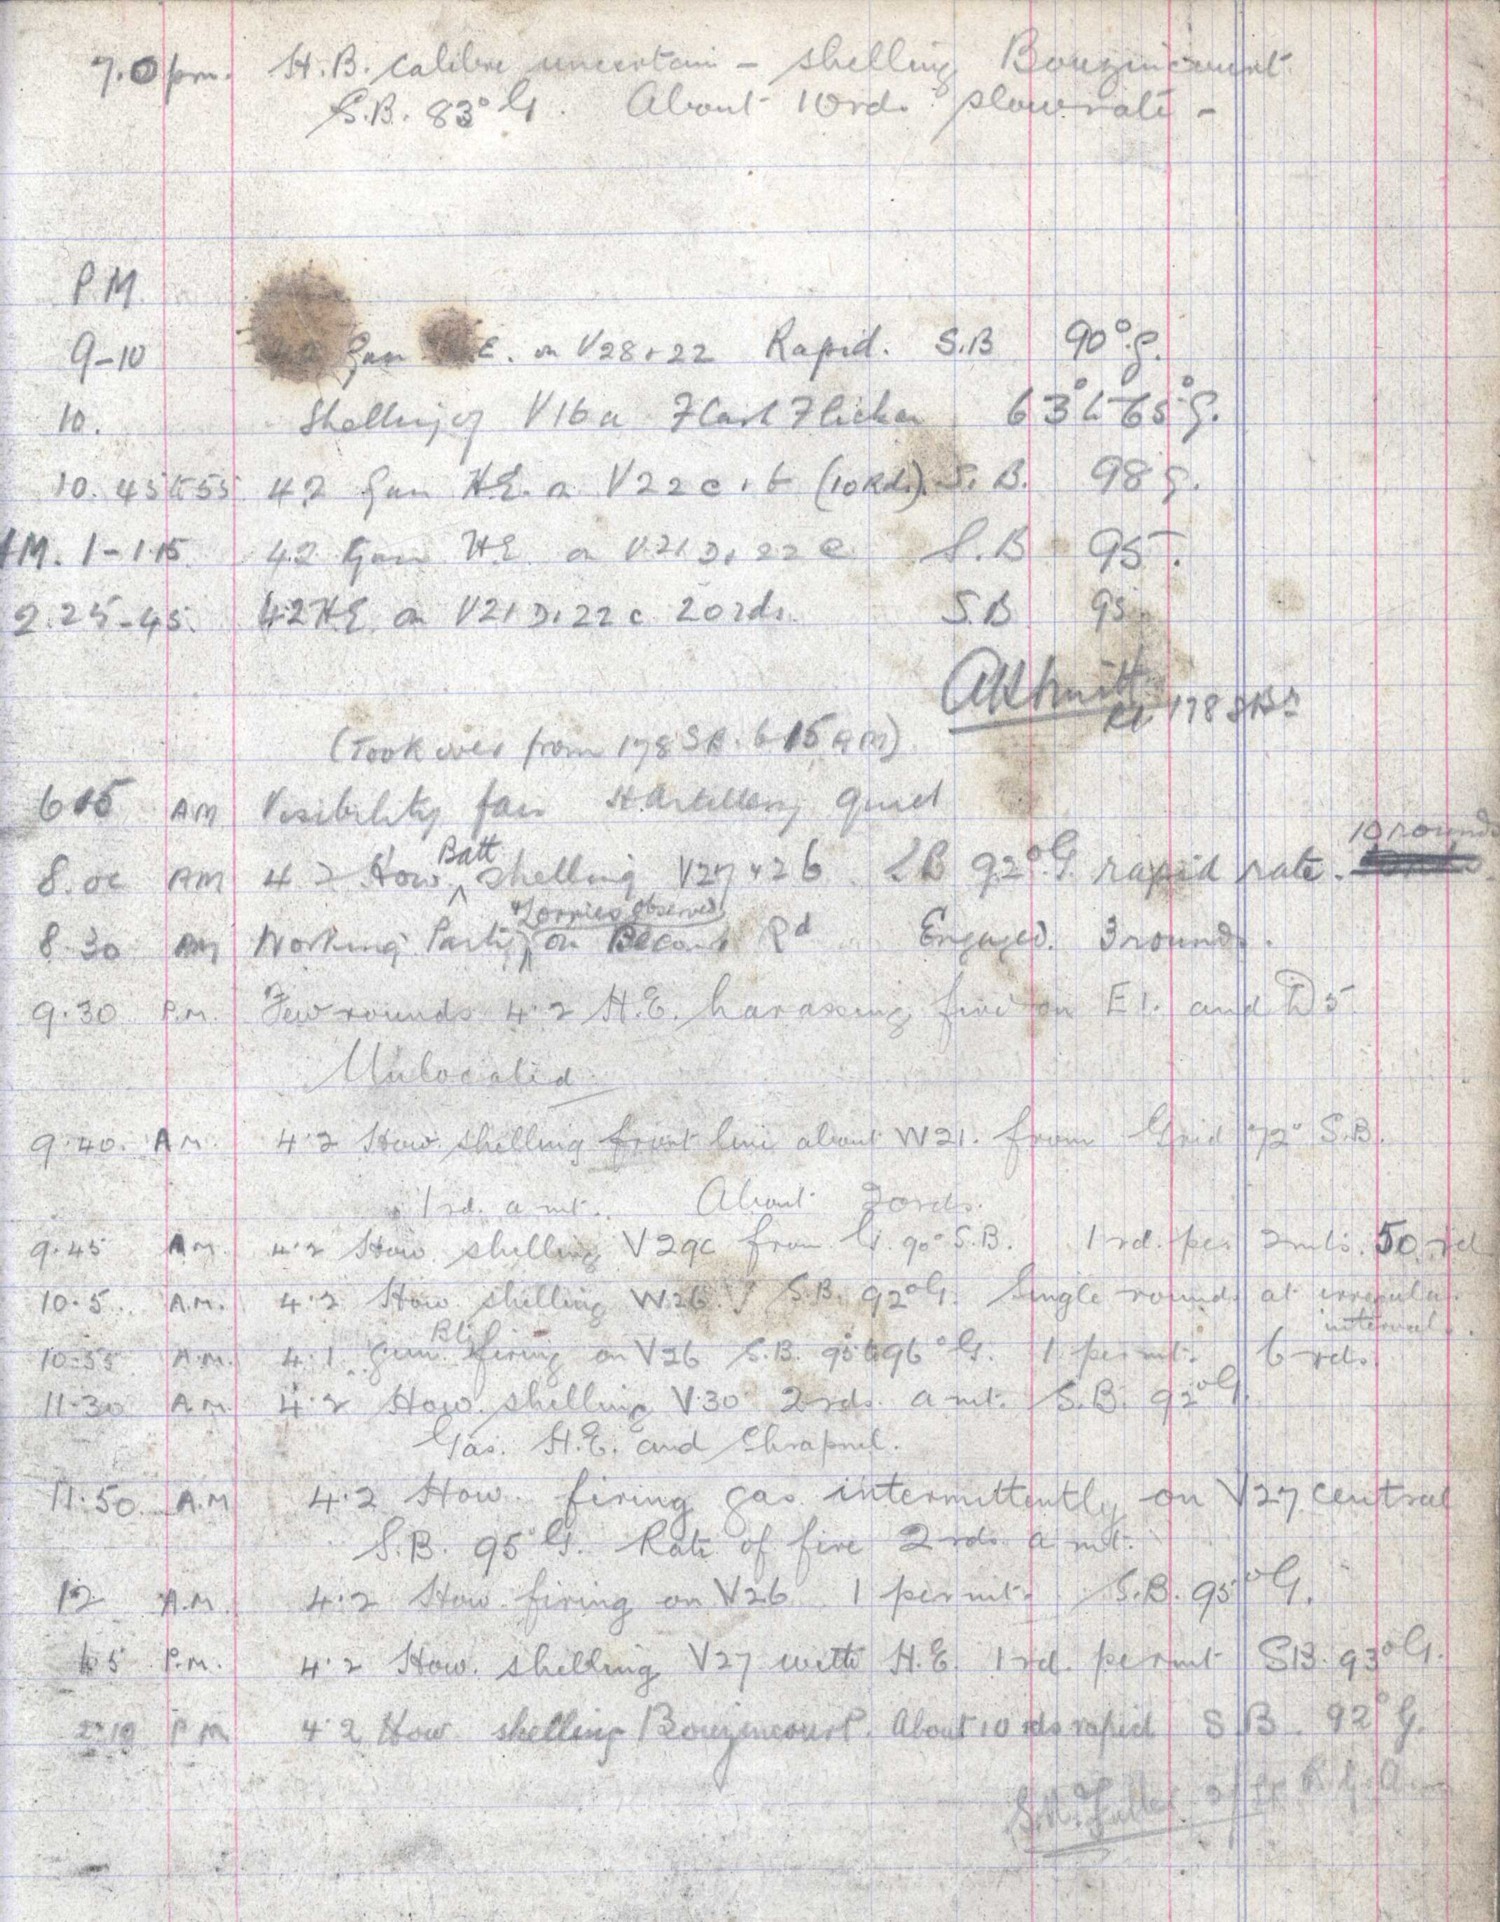 7.0 pm. H.B. calibre uncertain - shelling Bouzincourt
S.B. 83° G. About 10 rds. slow rate -
P.M.
9-10 Gun E. on V28 + 22 Rapid. S.B 90° G.
10. Shelling of V16a Flash Flicker 63° to 65° G.
10. 45 to 55 42 Gun H.E. on V22 c + b (10 Rds.). S.B. 98 G.
AM. 1-1.15 42 Gun HE on V21 D, 22 C S.B 95.
2.25-45. 42 HE on V21 D, 22 c 20 rds. S.B 95.
178 SBy
(Took over from 178 SB. 6 15 AM)
6 15 AM Visibility fair H. Artillery quiet
10 rounds
Batt
8. oc AM 4 2 How. shelling V27 + 26. S B 92° G. rapid rate.
+ Lorries observed
8.30 AM Working Party on Becourt Rd Engaged. 3 rounds.
9.30 P.M. Few rounds 4.2 H.E. harassing fire on E1. and D5.
Unlocated.
9.40. A.M. 4.2 How. shelling front line about W21. from Grid 72° S.B.
1 rd. a mt. About 20 rds.
9.45 A.M. 4.2 How shelling V29c from G. 90° S.B. 1 rd. per 2 mts. 50 rd
10.5. A.M. 4.2 How shelling W26. S.B. 92° G. Single rounds at irregular
intervals.
Bty
10.55 A.M. 4.1 gun firing on V26 S.B. 95° to 96° G. 1 per mt. 6 rds.
11.30 A.M. 4.2 How. shelling V.30 2 rds. a mt. S.B. 92° G.
Gas. H.E. and Shrapnel.
11.50. A.M 4.2 How. firing gas intermittently on V27 central
S.B. 95° G. Rate of fire 2 rds a mt.
12 A.M. 4.2 How. firing on V26 1 per mt. S.B. 95° G.
P.M. 4.2 How. shelling V27 with H.E. 1 rd. per mt SB. 93° G.
2.10 P M 4.2 How shelling Bouzincourt. About 10 rds rapid S.B. 92° G.
Fuller 2/Lt R.G.A.